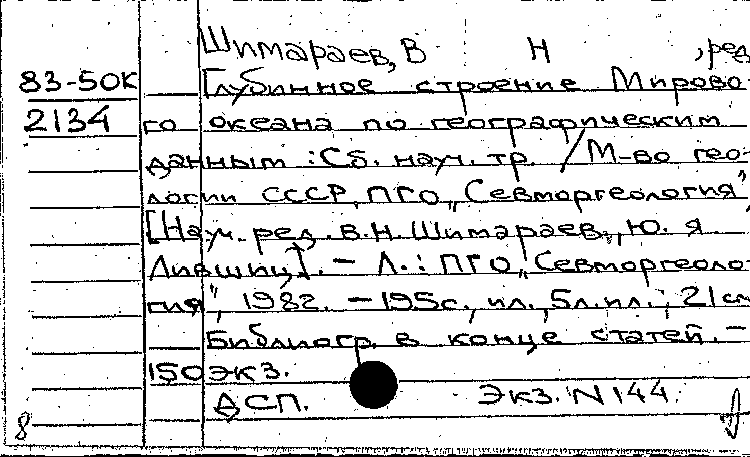 Шимараев, В Н , ред
83-50К Глубинное строение Мирово-
2134 го океана по географическим
данным : Сб. науч. тр. / М-во гео-
логии СССР, ПГО „Севморгеология",
[Науч. ред. В.Н. Шимараев, Ю. Я
Лившиц]. – Л.: ПГО „Севморгеоло-
гия", 1982. – 195с., ил., 5л.ил.; 21см
Библиогр. в конце статей. –
150 экз.
ДСП. Экз. N 144.
8